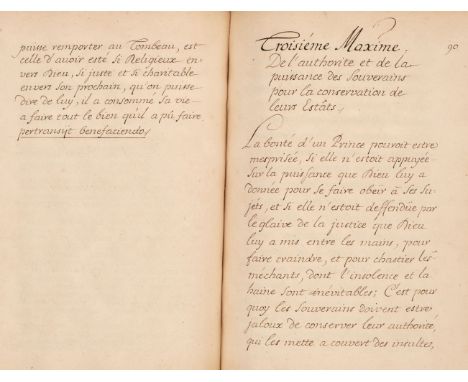 puisse remporter au Tombeau, est
celle d'auoir esté si Religieux en-
vers Dieu, si juste et si charitable
envers son prochain, qu'on puisse
dire de luy, il a consommé sa vie
a faire tout le bien qu'il a pû faire
pertransyt benefaciendo,
Troisiéme Maxime.
90
De l'authorité et de la
puissance des Souverains
pour la conservation de
leurs Estâts,
La bonté d'un Prince pouroit estre
mesprisée, si elle n'estoit appuyée
sur la puissance que Dieu luy a
donnée pour se faire obeir à ses su-
jéts, et si elle n'estoit deffendüe par
le glaive de la justice que Dieu
luy a mis entre les mains, pour
faire craindre, et pour chastier les
méchants, dont l'insolence et la
haine sont inévitables; C'est pour
quoy les Souverains doivent estre
jaloux de conserver leur authorité,
qui les mette a couvert des insultes,